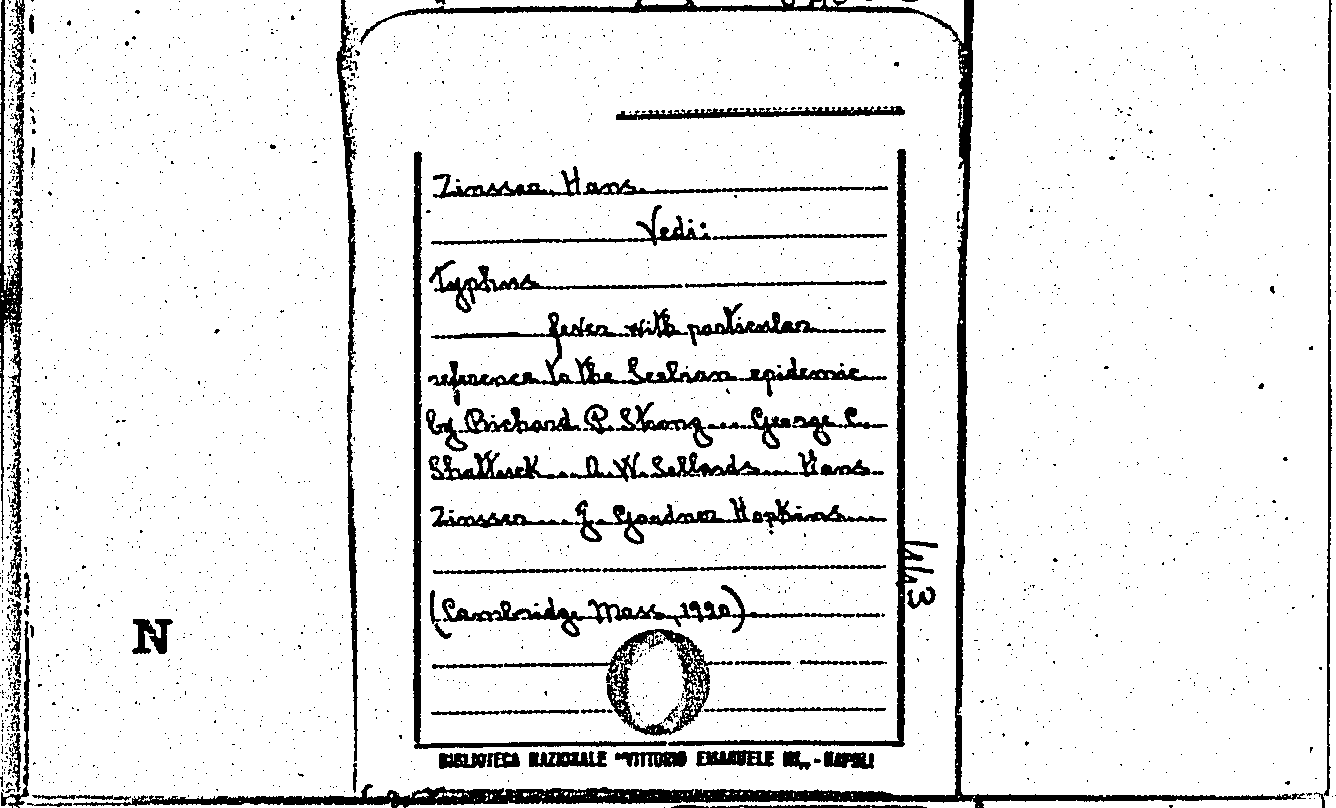 Zinsser, Hans.
Vedi:
Typhus
fever with particular
reference to the Serbian epidemic
by Richard P. Strong... George C.
Shattuck... A. W. Sellards... Hans
Zinsser... G. Gardner Hopkins...
(Cambridge Mass., 1920)
N
BIBLIOTECA NAZIONALE "VITTORIO EMANUELE III„ - NAPOLI